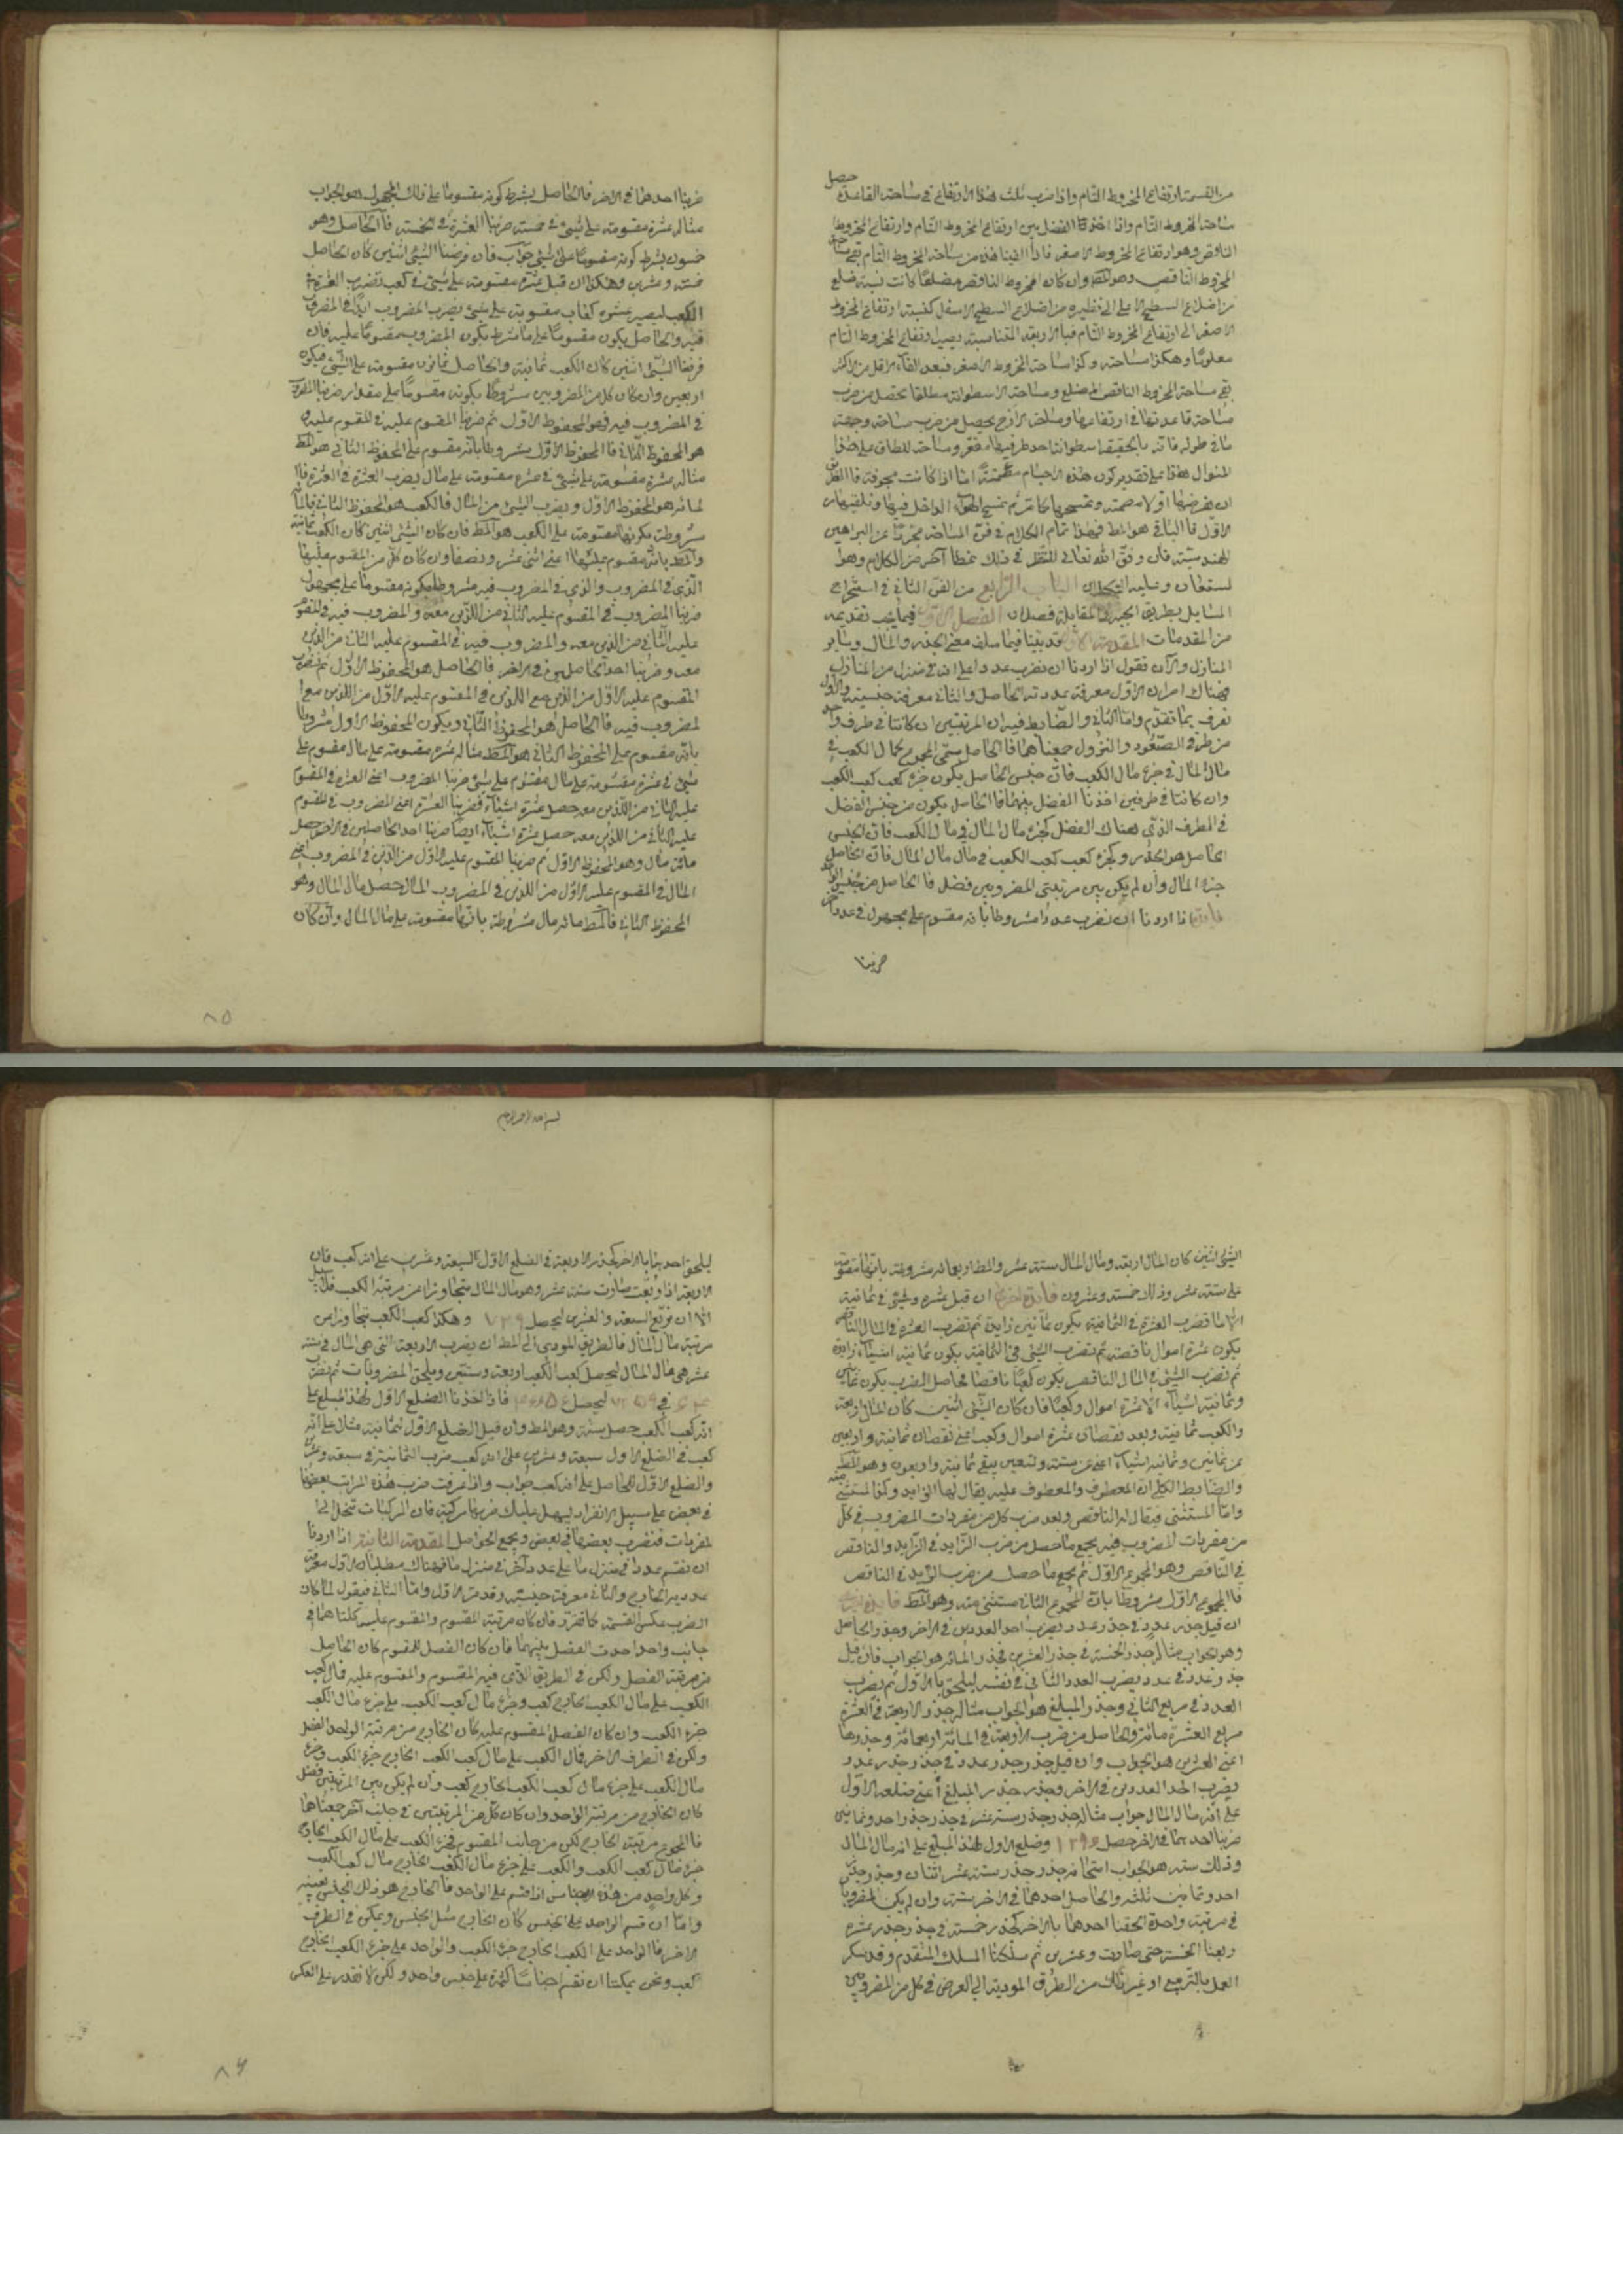 من القسمة ارتفاع المخروط التام واذا ضرب ثلث هذا الارتفاع في مساحة القاعدة حصل
مساحة المخروط التام واذا اخذنا الفضل بين ارتفاع المخروط التام وارتفاع المخروط
الناقص وهو ارتفاع المخروط الاصغر فاذا القيناه من مساحة المخروط التام بقي مساحة
المخروط الناقص وهو المط وان كان المخروط الناقص مضلعا كانت نسبة ضلع
من اضلاع السطح الاعلى الى نظيره من اضلاع السطح الاسفل كنسبة ارتفاع المخروط
الاصغر الى ارتفاع المخروط التام فبالاربعة المتناسبة يصير ارتفاع المخروط التام
معلوما وهكذا مساحته وكذا مساحة المخروط الاصغر فبعد القاء الاقل من الاكثر
بقي مساحة المخروط الناقص المضلع ومساحة الاسطوانة مطلقا تحصل من ضرب
مساحة قاعدتها في ارتفاعها ومساحة الازج يحصل من ضرب مساحة وجهه
في طوله فانه بالحقيقة اسطوانة احد طرفيها مقعر ومساحة الطاق على هذا
المنوال هذا على تقدير كون هذه الاجسام مصمتة اما اذا كانت مجوفة فالطريق
ان يفرضها اولا مصمتة ونمسحها كما مر ثم نمسح الهواء الداخل فيها ونلقيها من
الاول فالباقي هو المط فهذا تمام الكلام في فن المساحة مجردا عن البراهين
الهندسية فان وفق الله تعالى للنظر في ذلك نمطا آخر من الكلام وهو
المستعان وعليه التكلان الباب الرابع من الفن الثاني في استخراج
المسايل بطريق الجبر والمقابلة فصلان الفصل الاول فيما يجب تقديمه
من المقدمات المقدمة الاولى قد بينا فيما سلف معنى الجذر والمال وساير
المنازل والآن نقول اذا اردنا ان نضرب عددا على انه في منزل من المنازل
فهناك امران الاول معرفة عددية الحاصل والثاني معرفة جنسيته والاول
تعرف بما تقدم واما الثاني والضابط فيه ان المرتبتين ان كانتا في طرف واحد
من طرفي الصعود والنزول جمعناهما فالحاصل سمي المجموع كمال الكعب في
مال المال في جزء مال الكعب فان جنس الحاصل يكون جزء كعب كعب الكعب
وان كانتا في طرفين اخذنا الفضل بينهما فالحاصل يكون من جنس الفضل
في الطرف الذي هناك الفضل كجزء مال المال في مال الكعب فان الجنس
الحاصل هو الجذر وكجزء كعب كعب الكعب في مال مال المال فان الحاصل
جزء المال وان لم يكن بين مرتبتي المضروبين فضل فالحاصل من جنس الواحد
فايدة اذا اردنا ان نضرب عددا مشروطا بانه مقسوم على مجهول في عدد آخر
ضربنا
ضربنا احدهما في الاخر فالحاصل بشرط كونه مقسوما على ذلك المجهول هو الجواب
مثاله عشرة مقسومة على شيء في خمسة ضربنا العشرة في الخمسة فالحاصل وهو
خمسون بشرط كونه مقسوما على الشيء جواب فان فرضنا الشيء اثنين كان الحاصل
خمسة وعشرين وهكذا ان قيل عشرة مقسومة على شيء في كعب نضرب العشرة في
الكعب ليصير عشرة كعاب مقسومة على شيء يضرب المضروب ايضا في المضروب
فيه والحاصل يكون مقسوما على ما شرط بكون المضروب مقسوما عليه فان
فرضنا الشيء اثنين كان الكعب ثمانية والحاصل ثمانون مقسومة على الشيء فيكون
اربعين وان كان كل من المضروبين مشروطا بكونه مقسوما على مقدار ضربنا المضروب
في المضروب فيه فهو المحفوظ الاول ثم ضربنا المقسوم عليه في المقسوم عليه
هو المحفوظ الثاني فالمحفوظ الاول مشروطا بانه مقسوم على المحفوظ الثاني هو المط
مثاله عشرة مقسومة على شيء في عشرة مقسومة على مال يضرب العشرة في العشرة فا
لمائة هو المحفوظ الاول ويضرب الشيء في المال فالكعب هو المحفوظ الثاني فالمائة
مشروطة بكونها مقسومة على الكعب هو المط فان كان الشيء اثنين كان الكعب ثمانية
والمط مائة مقسوم عليها اعني اثنى عشر ونصفا وان كان كل من المقسوم عليهما
الذي في المضروب والذي في المضروب فيه مشروطا بكونه مقسوما على مجهول
ضربنا المضروب في المقسوم عليه الثاني من اللذين معه والمضروب فيه في المقسوم
عليه الثاني من الذين معه والمضروب فيه في المقسوم عليه الثاني من الذين
معه وضربنا احد الحاصلين في الاخر فالحاصل هو المحفوظ الاول ثم نضرب
المقسوم عليه الاول من الذين مع اللذين في المقسوم عليه الاول من اللذين مع ا
لمضروب فيه فالحاصل هو المحفوظ الثاني ويكون المحفوظ الاول مشروطا
بانه مقسوم على المحفوظ الثاني هو المط مثاله عشرة مقسومة على مال مقسوم على
شيء في عشرة مقسومة على مال مقسوم على شيء ضربنا المضروب اعني العشرة في المقسوم
عليه الثاني من اللذين معه حصل عشرة اشياء فضربنا العشرة اعني المضروب في المقسوم
عليه الثاني من اللذين معه حصل عشرة اشياء ايضا ضربنا احد الحاصلين في الاخر حصل
مائة مال وهو المحفوظ الاول ثم ضربنا المقسوم عليه الاول من الذين في المضروب اعني
المال في المقسوم عليه الاول من اللذين في المضروب المال حصل مال المال وهو
المحفوظ الثاني فالمط مائة مال مشروطة بانها مقسومة على مال المال وان كان
٨٥
الشيء اثنين كان المال اربعة ومال المال ستة عشر والمط اربعمائة مشروطة بانها مقسومة
على ستة عشر وذلك خمسة وعشرون فايدة اخرى ان قيل عشرة وشيء في ثمانية
الا مالا فضرب العشرة في الثمانية يكون ثمانين زايدة ثم نضرب العشرة في المال الناقص
يكون عشرة اموال ناقصة ثم نضرب الشيء في الثمانية يكون ثمانية اشياء زايدة
ثم نضرب الشيء في المال الناقص يكون كعبا ناقصا فحاصل الضرب يكون ثمانين
وثمانية اشياء الا عشرة اموال وكعبا فان كان الشيء اثنين كان المال اربعة
والكعب ثمانية وبعد نقصان عشرة اموال وكعب اعني نقصان ثمانية واربعين
من ثمانين وثمانية اشياء اعني من ستة وتسعين يبقى ثمانية واربعون وهو المط
والضابط الكلي ان المعطوف والمعطوف عليه يقال لهما الزايد وكذا المستثنى منه
واما المستثنى فيقال له الناقص وبعد ضرب كل من مفردات المضروب في كل
من مفردات المضروب فيه يجمع ما حصل من ضرب الزايد في الزايد والناقص
في الناقص وهو المجموع الاول ثم يجمع ما حصل من ضرب الزايد في الناقص
فالمجموع الاول مشروطا بان المجموع الثاني مستثنى منه وهو المط فايدة اخرى
ان قيل جذر عدد في جذر عدد يضرب احد العددين في الاخر وجذر الحاصل
وهو الجواب مثاله جذر الخمسة في جذر العشرين فجذر المائة هو الجواب فان قيل
جذر عدد في عدد يضرب العدد الثاني في نفسه ليلحق بالاول ثم يضرب
العدد في مربع الثاني وجذر المبلغ هو الجواب مثاله جذر الاربعة في العشرة
مربع العشرة مائة والحاصل من ضرب الاربعة في المائة اربعمائة وجذرها
اعني العشرين هو الجواب وان قيل جذر جذر عدد في جذر جذر عدد
يضرب احد العددين في الاخر وجذر جذر المبلغ اعني ضلعه الاول
على انه مال المال جواب مثاله جذر جذر ستة عشر في جذر جذر واحد وثمانين
ضربنا احدهما في الاخر حصل ١٢٩٦ وضلع الاول لهذا المبلغ على انه مال المال
وذلك ستة هو الجواب امتحانه جذر جذر ستة عشر اثنان وجذر جذر
احد وثمانين ثلثة والحاصل احدهما في الاخر ستة وان لم يكن المضروبان
في مرتبة واحدة الحقنا احدهما بالاخر كجذر خمسة في جذر جذر عشرة
ربعنا الخمسة حتى صارت وعشرين ثم سلكنا المسلك المتقدم وقد يتكرر
العمل بالتربيع او غير ذلك من الطرق المودية الى الغرض في كل من المضروبين
بسم الله الرحمن الرحيم
ليلحق احدهما بالاخر كجذر الاربعة في الضلع الاول لسبعة وعشرين على انه كعب فان
الاربعة اذا ربعت صارت ستة عشر وهو مال المال يتجاوز من مرتبة الكعب فلا سبيل
الا ان نربع السبعة والعشرين ليحصل ٧٢٩ وهكذا كعب الكعب يتجاوز من
مرتبة مال المال فالطريق المودي الى المط ان يضرب الاربعة التي هي المال في ستة
عشر هي مال المال ليحصل كعب الكعب اربعة وستين ويلحق المضروبات ثم نضرب
٦٤ في ٧٢٩ ليحصل ٤٦٦٥٦ فاذا اخذنا الضلع الاول لهذا المبلغ على
انه كعب الكعب حصل ستة وهو المط وان قيل الضلع الاول لثمانية مثال على انه
كعب في الضلع الاول سبعة وعشرين على انه كعب ضرب الثمانية في سبعة وعشرين
والضلع الاول للحاصل على انه كعب جواب واذا عرفت ضرب هذه المراتب بعضها
في بعض على سبيل الانفراد يسهل عليك ضربها مركبة فان المركبات تنحل الى ا
لمفردات فنضرب بعضها في بعض ويجمع الحواصل المقدمة الثانية اذا اردنا
ان نقسم عددا في منزل ما على عدد آخر في منزل ما فهناك مطلبان الاول معرفة
عددية الخارج والثاني معرفة جنسيته وقد مر الاول واما الثاني فيقول لما كان
الضرب عكس القسمة كما تقرر فان كان مرتبة المقسوم والمقسوم عليه كلتاهما في
جانب واحد اخذت الفضل بينهما فان كان الفضل للمقسوم كان الحاصل
من مرتبة الفضل ولكن في الطريق الذي فيه المقسوم والمقسوم عليه فمال كعب
الكعب على مال الكعب الخارج كعب وجزء مال كعب الكعب على جزء مال الكعب
جزء الكعب وان كان الفضل للمقسوم عليه كان الخارج من مرتبة الواحد الفضل
ولكن في الطرف الاخر فمال الكعب على مال كعب الكعب الخارج جزء الكعب وجزء
مال الكعب على جزء مال كعب الكعب الخارج كعب وان لم يكن بين المرتبتين فضل
كان الخارج من مرتبة الواحد وان كان كل من المرتبتين في جانب آخر جمعناهما
فالمجموع مرتبة الخارج لكن من جانب المقسوم فجزء الكعب على مال الكعب الخارج
جزء مال كعب الكعب والكعب على جزء مال الكعب الخارج مال كعب الكعب
وكل واحد من هذه الاجناس اذا قسم على الواحد فالخارج هو ذلك الجنس بعينه
واما ان قسم الواحد على الجنس كان الخارج مثل الجنس ويمكن في الطرف
الاخر فالواحد على الكعب الخارج جزء الكعب والواحد على جزء الكعب الخارج
كعب ونحن يمكننا ان نقسم اجناسا كثيرة على جنس واحد ولكن لا نقدر على العكس
٨٦